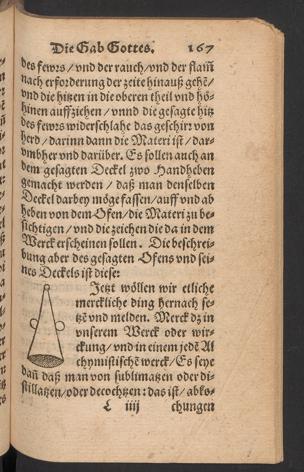 Die Gab Gottes. 167
des fewrs / vnd der rauch / vnd der flam̄
nach erforderung der zeite hinauß gehē /
vnd die hitzen in die oberen theil vnd hö-
hinen auffziehen / vnnd die gesagte hitz
des fewrs widerschlahe das geschirr von
herd / darinn dann die Materi ist / dar-
vmbher vnd darüber. Es sollen auch an
dem gesagten Deckel zwo Handheben
gemacht werden / daß man denselben
Deckel darbey möge fassen / auff vnd ab
heben von dem Ofen / die Materi zu be-
sichtigen / vnd die zeichen die da in dem
Werck erscheinen sollen. Die beschrei-
bung aber des gesagten Ofens vnd sei-
nes Deckels ist diese:
Jetzt wöllen wir etliche
merckliche ding hernach se-
tzē vnd melden. Merck dz in
vnserem Werck oder wir-
ckung / vnd in einem jedē Al
chymistischē werck / Es seye
dañ daß man von sublimatzen oder di-
stillatzen / oder decochtzen: das ist / abko-
L iiij chungen